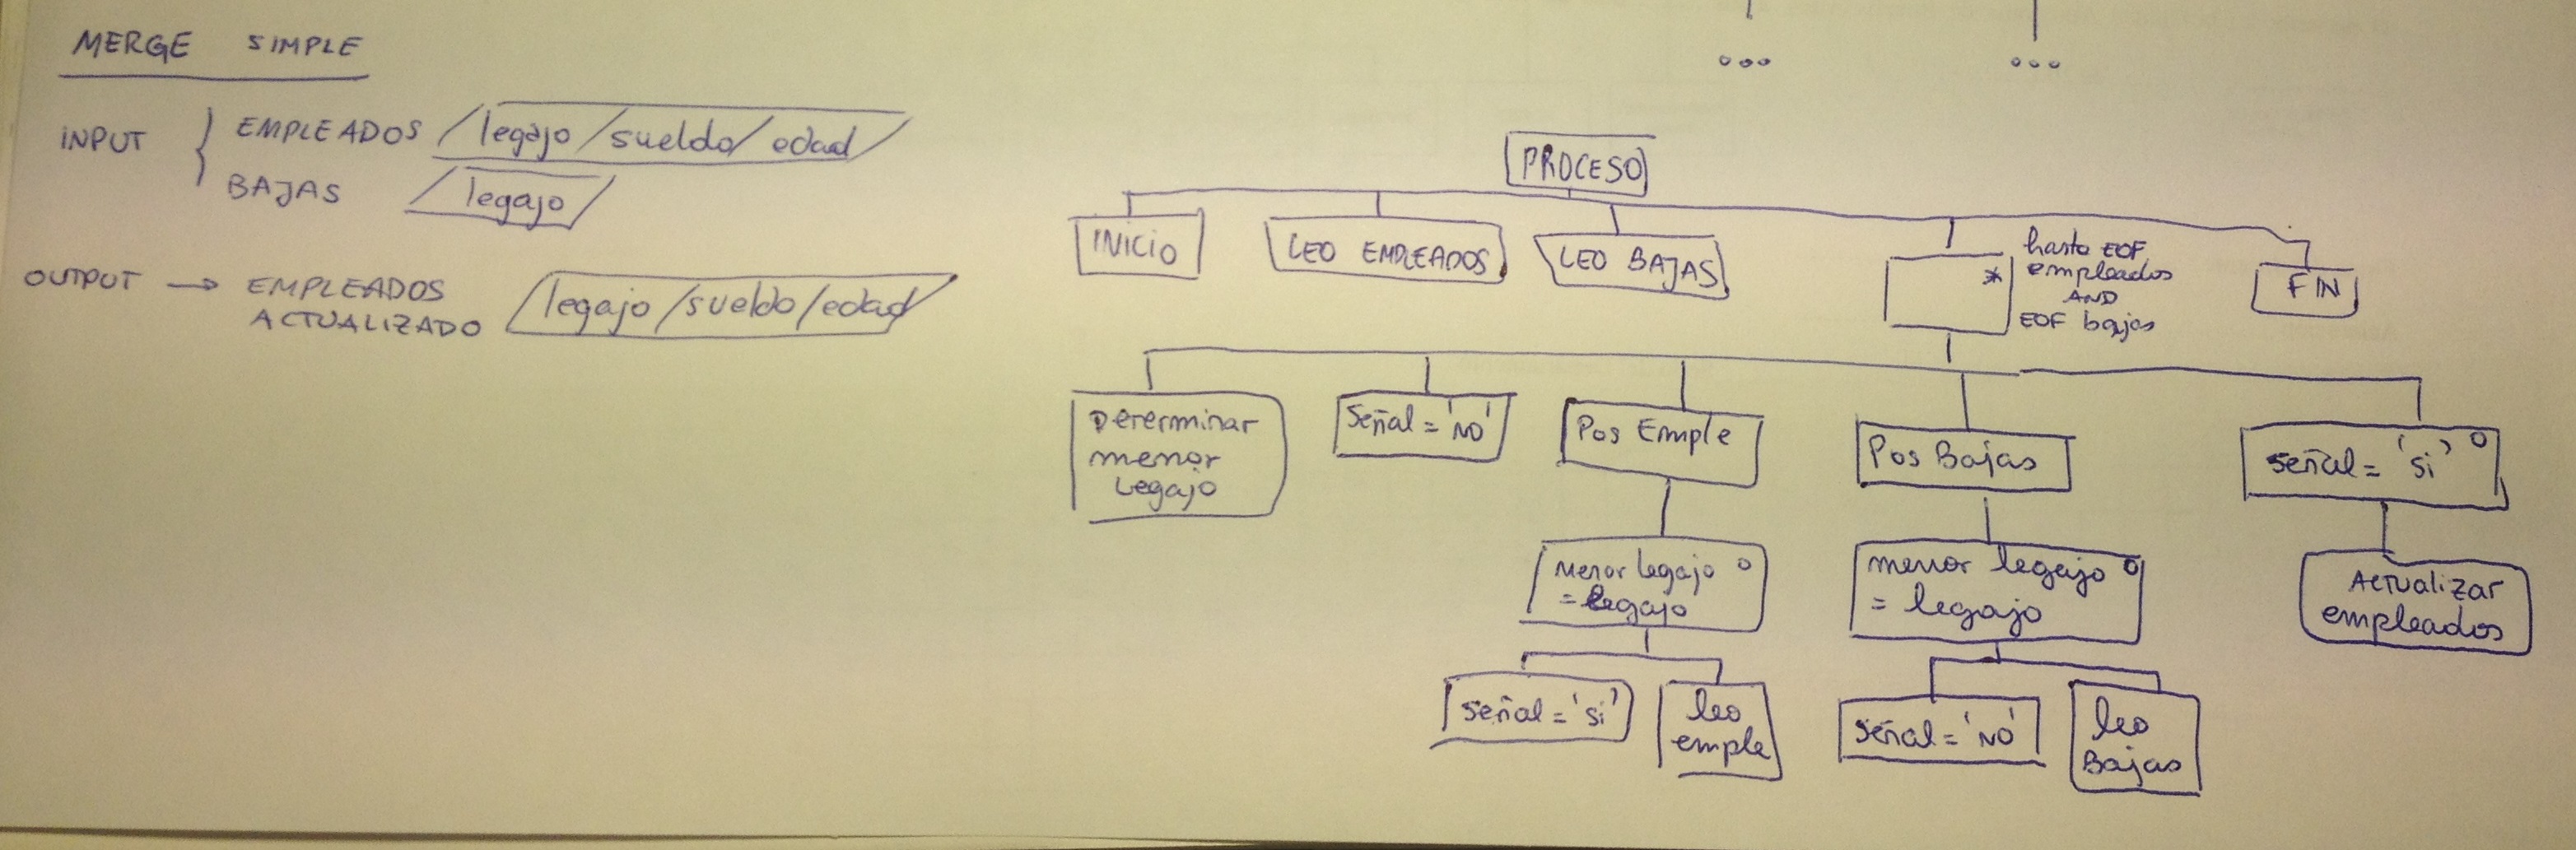 MERGE SIMPLE
INPUT { EMPLEADOS / legajo / sueldo / edad /
BAJAS / legajo /
OUTPUT → EMPLEADOS
ACTUALIZADO / legajo / sueldo / edad /
ooo ooo
PROCESO
INICIO
LEO EMPLEADOS
LEO BAJAS
*
hasta EOF
empleados
AND
EOF bajas
FIN
Determinar
menor
Legajo
Señal = 'NO'
Pos Emple
Pos Bajas
señal = 'si' o
Menor legajo o
= legajo
menor legajo o
= legajo
Actualizar
empleados
señal = 'si'
leo
emple
señal = 'NO'
leo
Bajas